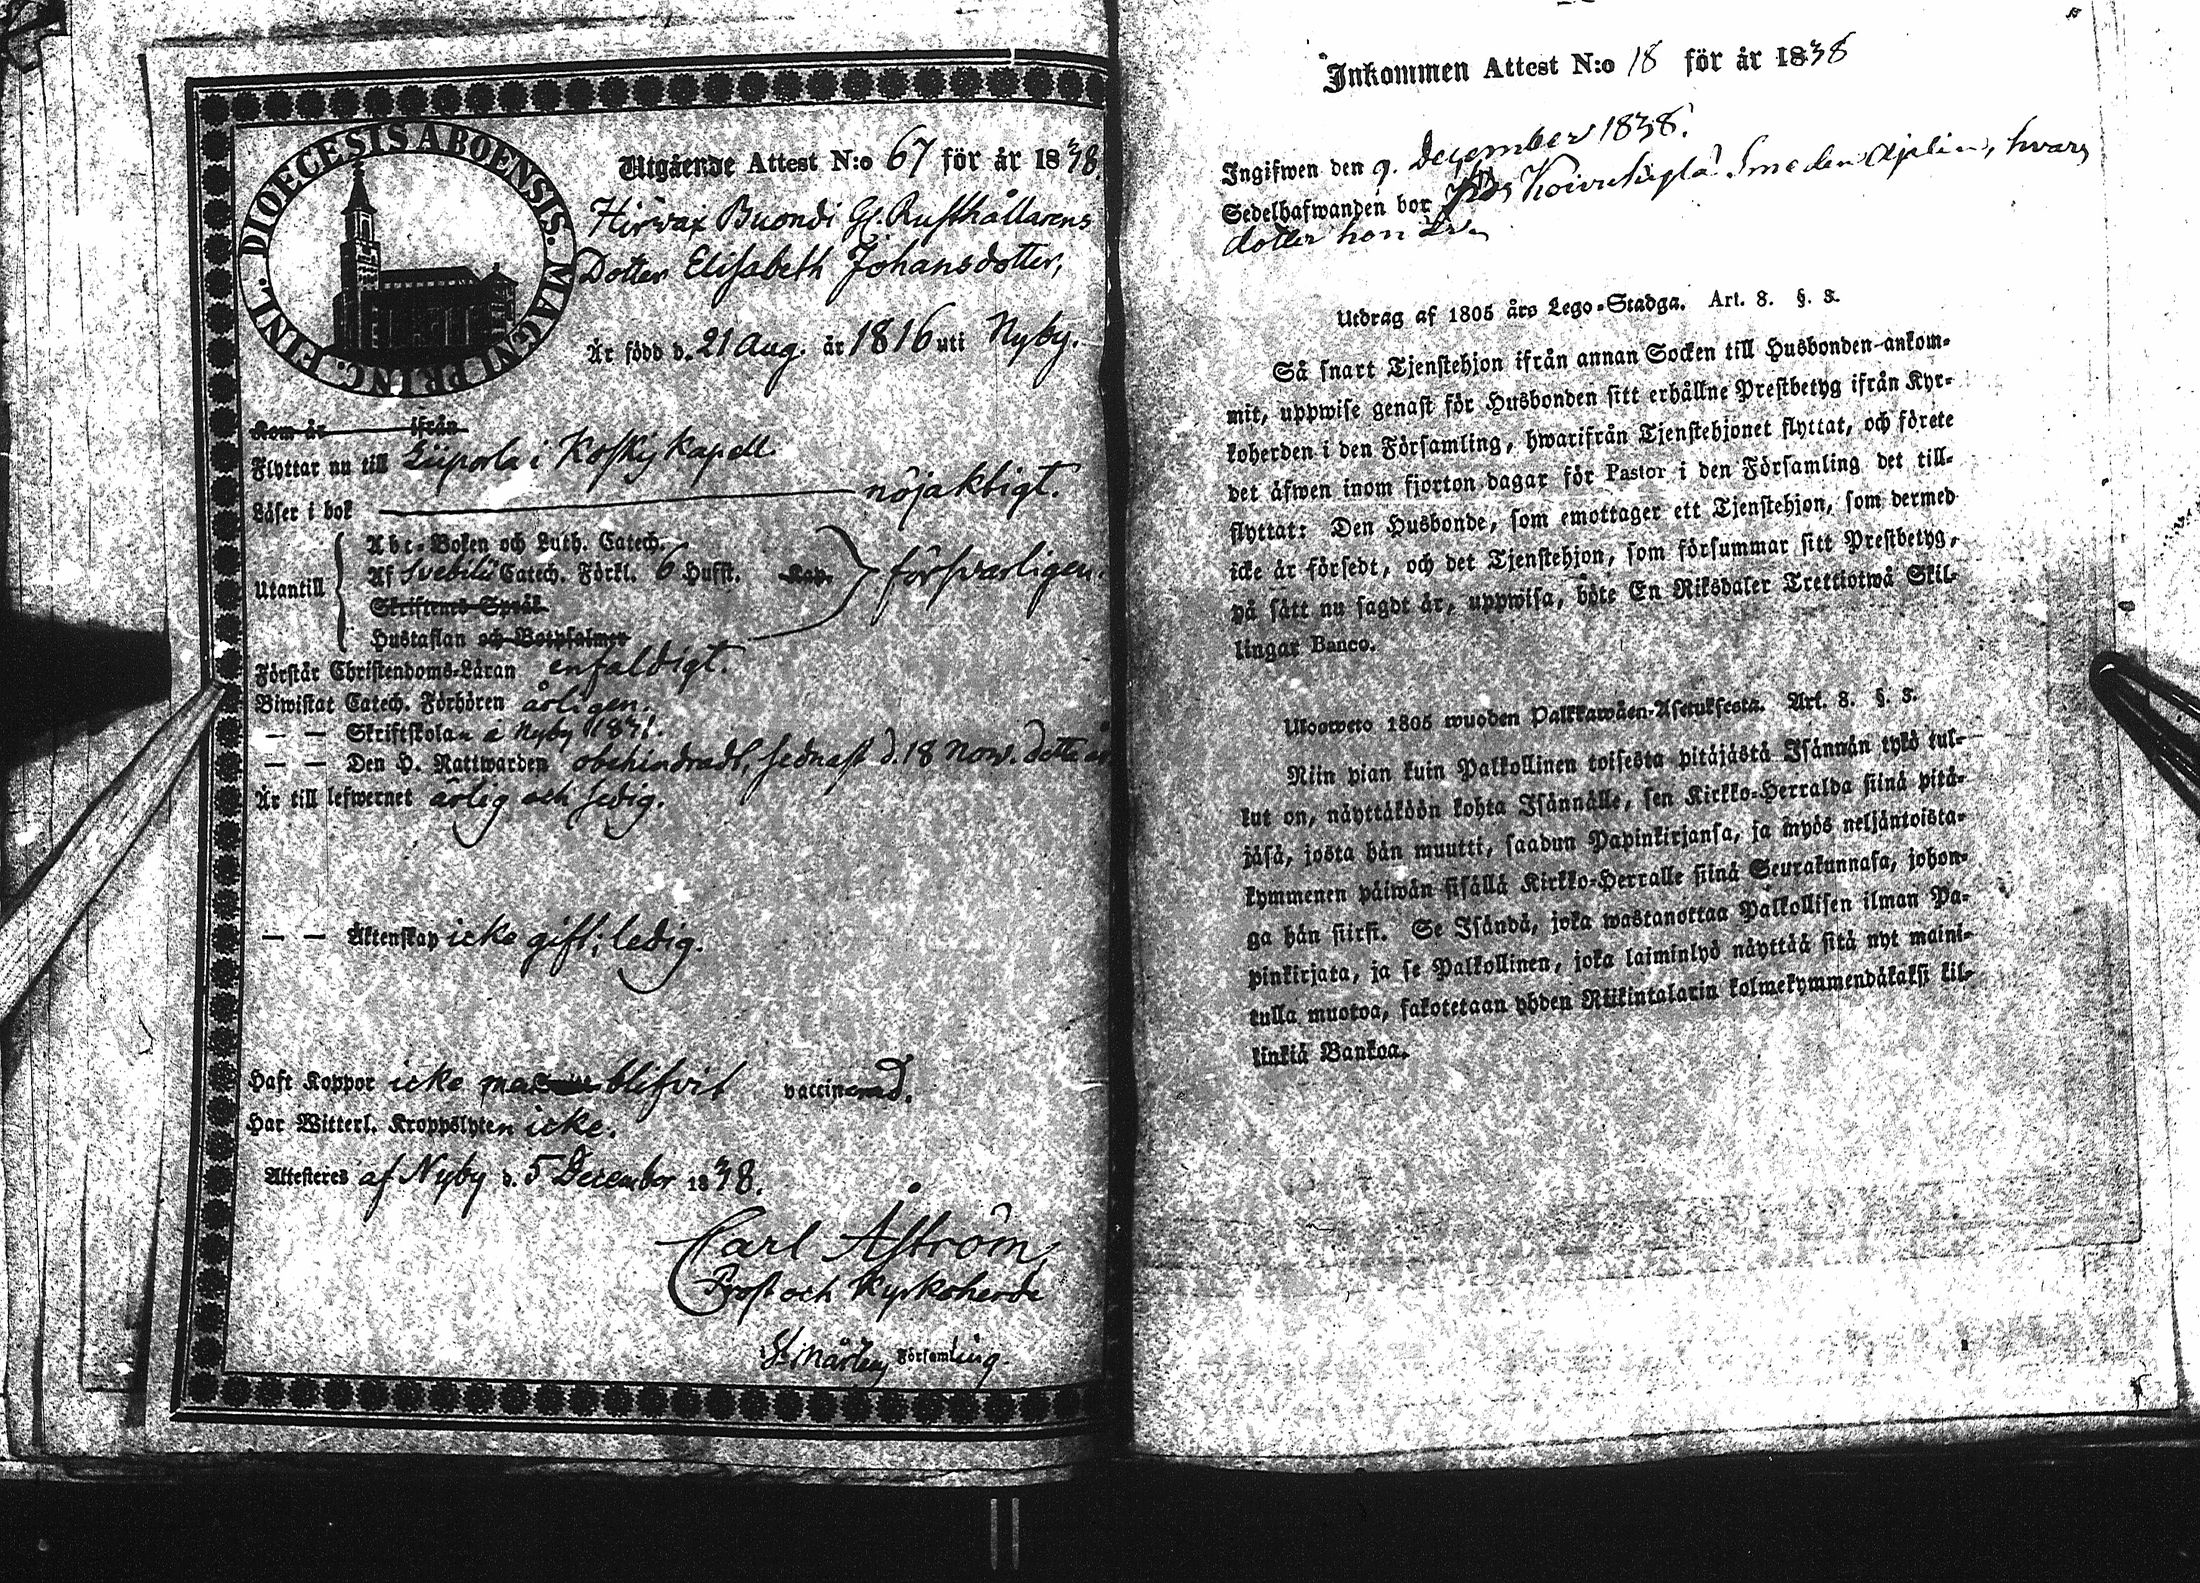 DIOECESIS ABOENSIS. MAGNI PRINC. FINL.
Utgående Attest N:o 67 för år 1838.
Hirvax Buondi Gl. Rusthållarens
Dotter Elisabeth Johansdotter,
Är född d. 21 Aug. år 1816 uti Nyby.
Kom år ifrån
Flyttar nu till Liiporla i Koskis Kapell.
Läser i bok nöjaktigt.
Utantill
Abc-Boken och Luth. Catech.
Af Svebilii Catech. Förkl. 6 Hufst. Kap. försvarligen.
Skriftenes Språk
Hustaflan och Botpsalmer
Förstår Christendoms-Läran enfaldigt.
Biwistat Catech. Förhören årligen.
— — Skriftskolan i Nyby 1831.
— — Den H. Nattwarden obehindradt, sednast d. 18 Nov. detta år
Är till lefwernet ärlig och sedig.
— — Äktenskap icke gift; ledig.
Haft Koppor icke blifvit vaccinerad.
Har Witterl. Kroppslyten icke.
Attesteres af Nyby d. 5 December 1838.
Carl Åström
Prost och Kyrkoherde
St Mårtens Församling.
Inkommen Attest N:o 18 för år 1838
Ingifwen den 9. December 1838.
Sedelhafwanden bor hos Smeden hvars
dotter hon är
Utdrag af 1805 års Lego-Stadga. Art. 8. §. 3.
Så snart Tjenstehjon ifrån annan Socken till Husbonden ankom-
mit, uppwise genast för Husbonden sitt erhållne Prestbetyg ifrån Kyr-
koherden i den Församling, hwarifrån Tjenstehjonet flyttat, och förete
det äfwen inom fjorton dagar för Pastor i den Församling det till-
flyttat: Den Husbonde, som emottager ett Tjenstehjon, som dermed
icke är försedt, och det Tjenstehjon, som försummar sitt Prestbetyg,
på sätt nu sagdt är, uppwisa, böte En Riksdaler Trettiotwå Skil-
lingar Banco.
Uloosweto 1805 wuoden Palkkawäen-Asetuksesta. Art. 8. §. 3.
Niin pian kuin Palkollinen toisesta pitäjästä Isännän tykö tul-
lut on, näyttäköön kohta Isännälle, sen Kirkko-Herralda siinä pitä-
jäsä, josta hän muutti, saadun Papinkirjansa, ja myös neljäntoista-
kymmenen päiwän sisällä Kirkko-Herralle siinä Seurakunnasa, johon-
ga hän siirsi. Se Isändä, joka wastanottaa Palkollisen ilman Pa-
pinkirjata, ja se Palkollinen, joka laiminlyö näyttää sitä nyt maini-
tulla muotoa, sakotetaan yhden Riikintalarin kolmekymmendäkaksi kil-
linkiä Bankoa.